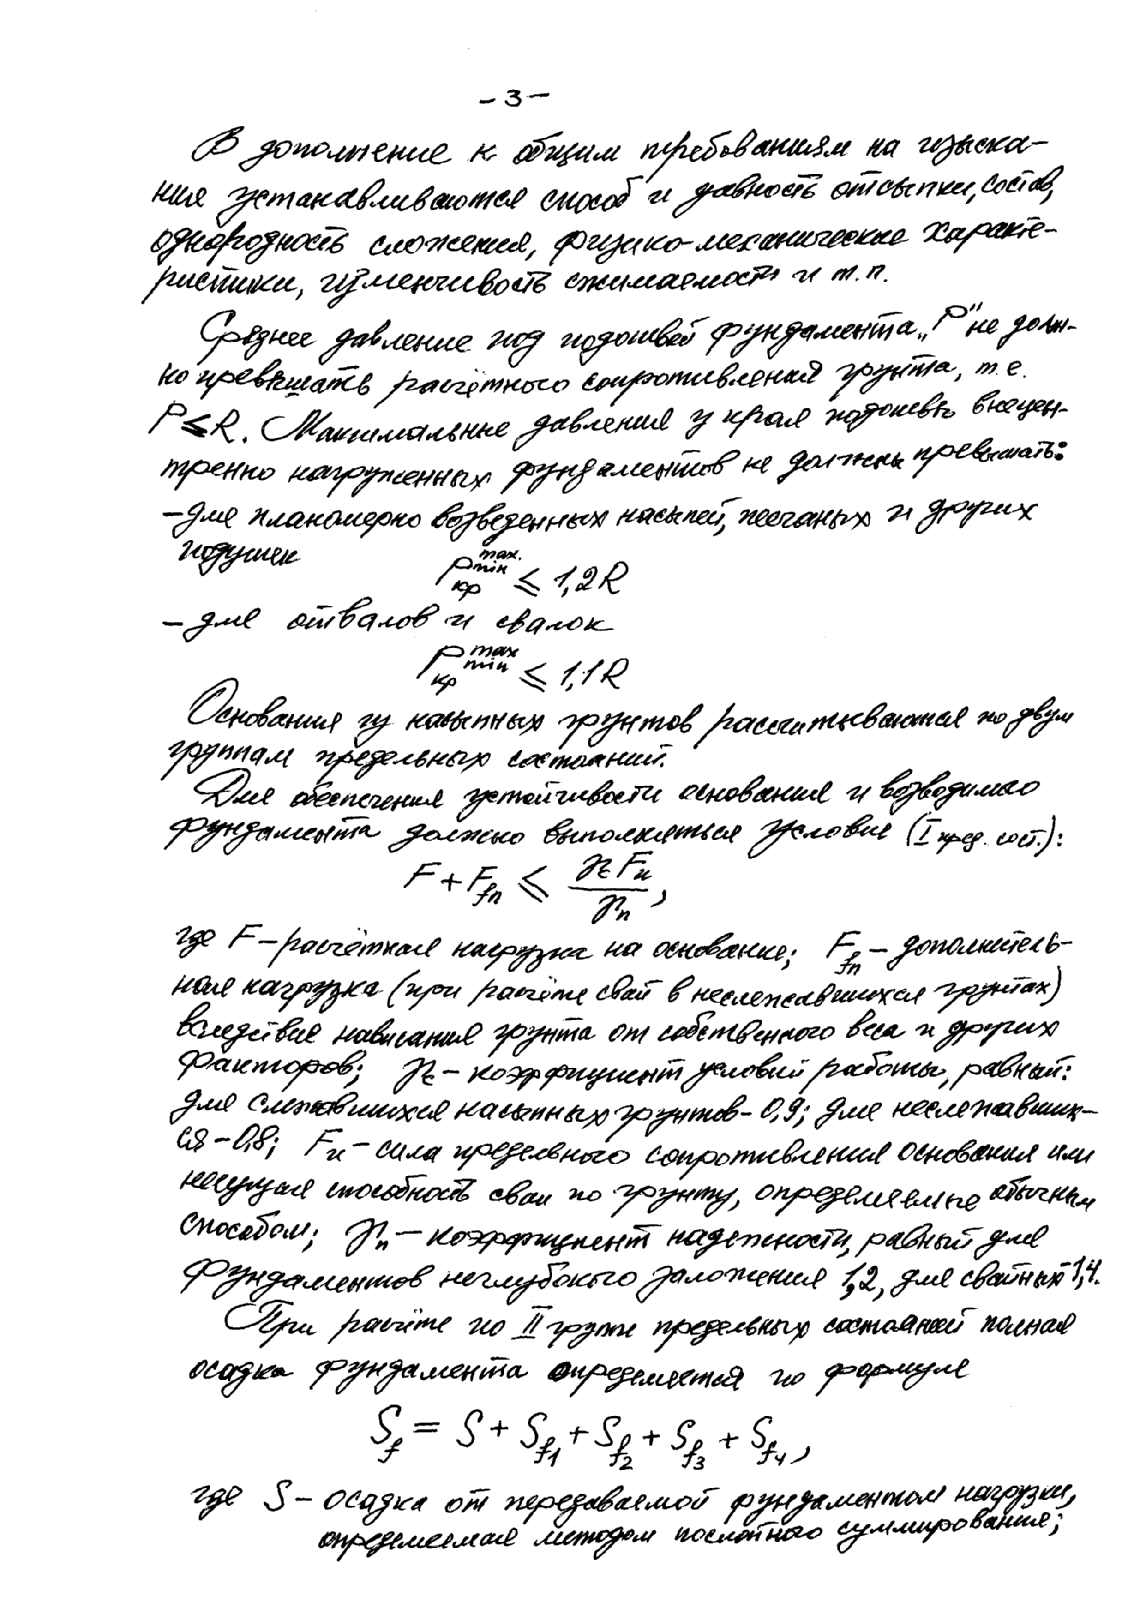 – 3 –
В дополнение к общим требованиям на изыска-
ния устанавливаются способ и давность отсыпки, состав,
однородность сложения, физико-механические характе-
ристики, изменчивость сжимаемости и т.п.
Среднее давление под подошвой фундамента „P" не долж-
но превышать расчётного сопротивления грунта, т.е.
P ≤ R. Максимальные давления у края подошвы внецен-
тренно нагруженных фундаментов не должны превышать:
– для планомерно возведенных насыпей, песчаных и других
подушек
P кр max. min ≤ 1,2R
– для отвалов и свалок
P кр max min ≤ 1,1R
Основания из насыпных грунтов рассчитываются по двум
группам предельных состояний.
Для обеспечения устойчивости основания и возводимого
фундамента должно выполняться условие (I пред. сост.):
F + F_fn ≤ γc Fu / γn ,
где F – расчётная нагрузка на основание; F_fn – дополнитель-
ная нагрузка (при расчёте свай в неслежавшихся грунтах)
вследствие нависания грунта от собственного веса и других
факторов; γc – коэффициент условий работы, равный:
для слежавшихся насыпных грунтов – 0,9; для неслежавших-
ся – 0,8; Fu – сила предельного сопротивления основания или
несущая способность сваи по грунту, определяемые обычным
способом; γn – коэффициент надежности, равный для
фундаментов неглубокого заложения 1,2, для свайных 1,4.
При расчёте по II группе предельных состояний полная
осадка фундамента определяется по формуле
S_f = S + S_f1 + S_f2 + S_f3 + S_f4 ,
где S – осадка от передаваемой фундаментом нагрузки,
определяемая методом послойного суммирования;